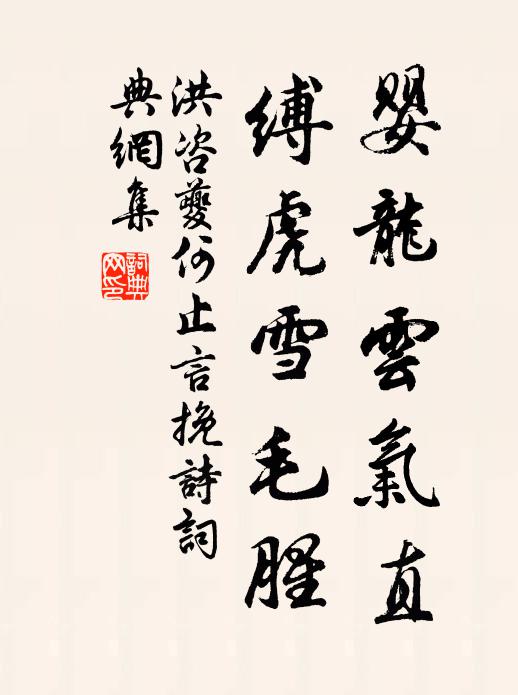 嬰龍雲氣直
縛虎雪毛腥
洪咨夔何止言挽詩詞
典網集
詞典
网印